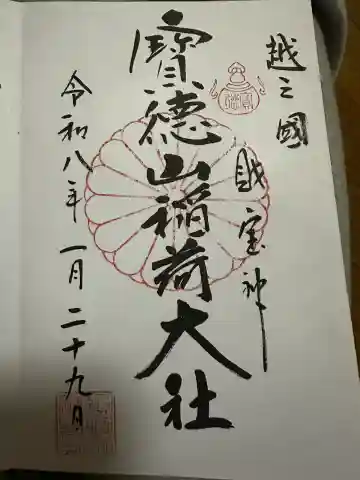 越之國
財宝神
寳徳山稲荷大社
令和八年 一月二十九日